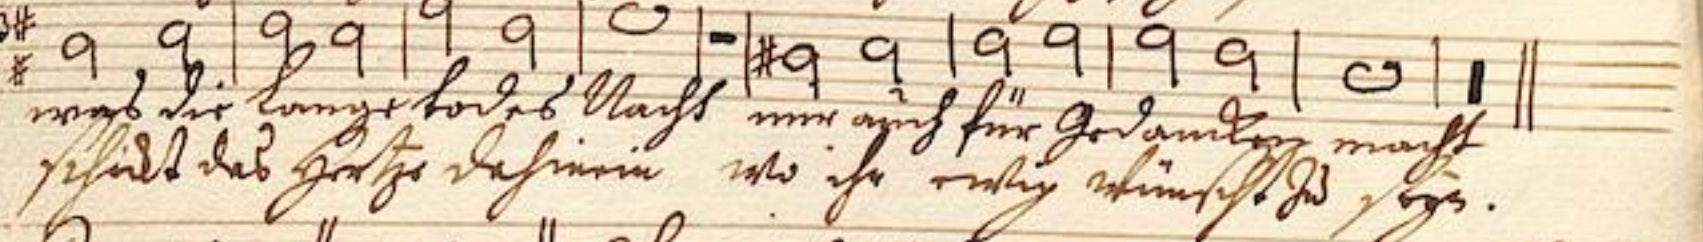 was die lange todes Nacht mir auch für Gedancken macht
schickt das Hertze da hinein wo ihr ewig wünscht zu seyn.